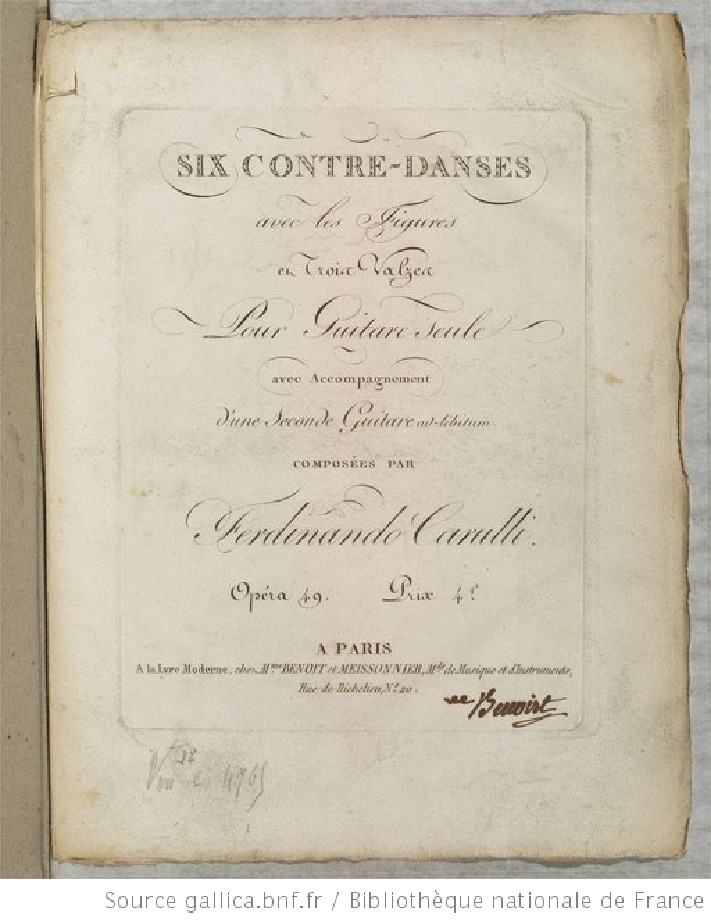 SIX CONTRE-DANSES
avec les Figures
et Trois Valzes
Pour Guitare Seule
avec Accompagnement
d'une Seconde Guitare ad-libitum
COMPOSÉES PAR
Ferdinando Carulli.
Opéra 49. Prix 4f
A PARIS
A la Lyre Moderne, chez Mme BENOIT et MEISSONNIER, Mds de Musique et d'Instruments,
Rue de Richelieu, No 20.
Benoist
Vm 4965
Source gallica.bnf.fr / Bibliothèque nationale de France